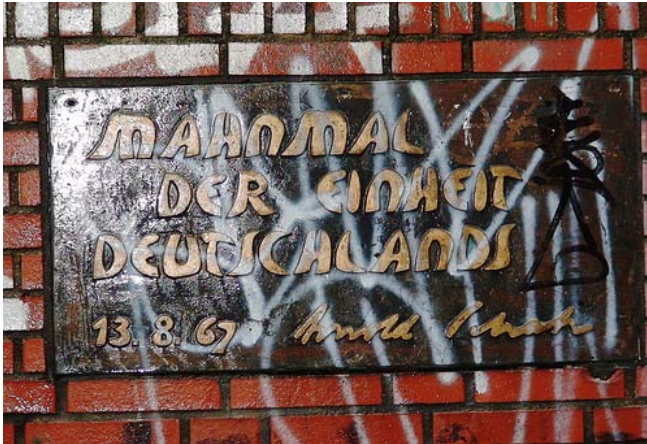 MAHNMAL
DER EINHEIT
DEUTSCHLANDS
13. 8. 67 Arnold Schatz